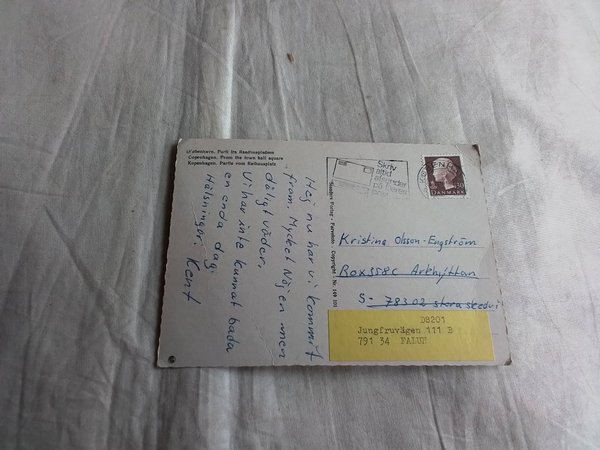 København. Parti fra Raadhuspladsen
Copenhagen. From the town hall square
Kopenhagen. Partie vom Rathausplatz
Skriv
altid
afsender
på Deres
post
DANMARK
Stenders Forlag - Farvefoto - Copyright - Nr.
Hej nu har vi kommit
fram. Mycket Nöjen men
dåligt väder.
Vi har inte kunnat bada
en enda dag.
Hälsningar. Kent
Kristina Olsson-Engström
Box 558C Arkhyttan
S- 78302 stora skedvi
D8201
Jungfruvägen 111 B
791 34 FALUN